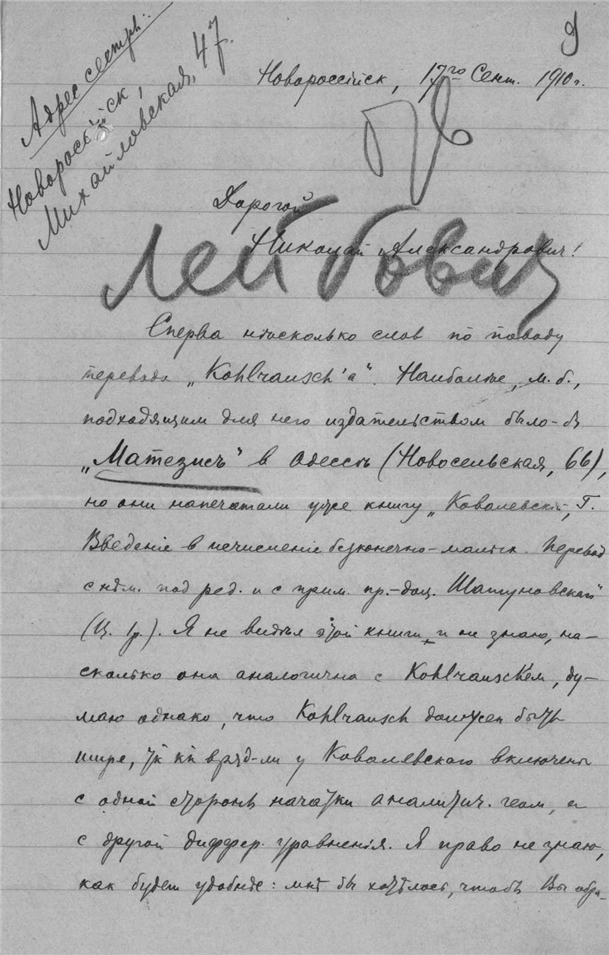 9
Адрес сестры:
Новороссійск,
Михайловская, 47.
Новороссійск, 17го Сент. 1910 г.
Дорогой
Николай Александрович!
Лейбович
Сперва нѣсколько слов по поводу
перевода „Kohlrausch'a". Наиболѣе, м. б.,
подходящим для него издательством было-бы
„Матезисъ" в Одессѣ (Новосельская, 66),
но они напечатали уже книгу „Ковалевскій, Г.
Введеніе в исчисленіе безконечно-малых. Перевод
с нѣм. под ред. и с прим. пр.-доц. Шатуновскаго"
(Ц. 1р.). Я не видѣл этой книги и не знаю, на-
сколько она аналогична с Kohlrausch'ем, ду-
маю однако, что Kohlrausch должен быть
шире, тк кк врядъ-ли у Ковалевского включены
с одной стороны начатки аналитич. геом., а
с другой диффер. уравненія. Я право не знаю,
как будет удобнѣе: мнѣ бы хотѣлось, чтобъ Вы обра-